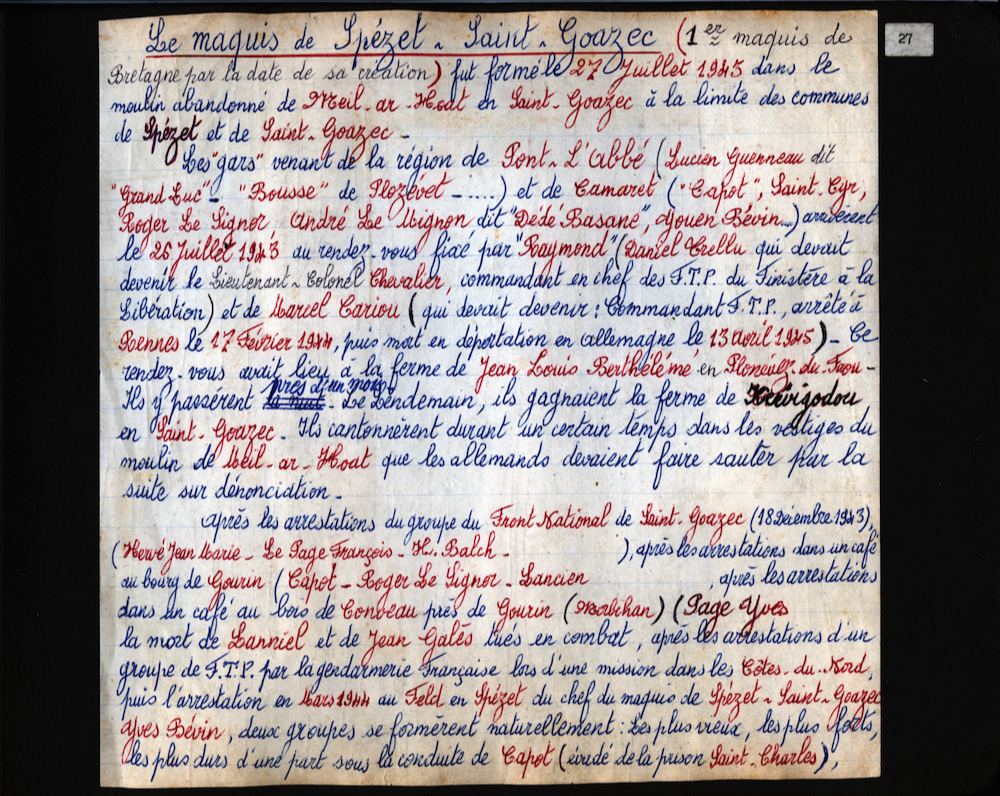 27
Le maquis de Spézet - Saint-Goazec (1er maquis de
Bretagne par la date de sa création) fut formé le 27 Juillet 1943 dans le
moulin abandonné de Meil-ar-Hoat en Saint-Goazec à la limite des communes
de Spézet et de Saint-Goazec -
Les "gars" venant de la région de Pont-L'abbé (Lucien Guenneau dit
"Grand Luc" - "Bousse" de Plozévet - .....) et de Camaret ("Capot", Saint-Cyr,
Roger Le Signor André Le Mignon dit "Dédé Basane", Youen Bévin...) arrivèrent
le 26 Juillet 1943 au rendez-vous fixé par "Raymond" (Daniel Trellu qui devait
devenir le Lieutenant-Colonel Chevalier, commandant en chef des F.T.P. du Finistère à la
Libération) et de Marcel Cariou (qui devait devenir : Commandant F.T.P., arrêté à
Rennes le 17 Février 1944, puis mort en déportation en allemagne le 13 avril 1945) - Ce
rendez-vous avait lieu à la ferme de Jean Louis Berthélémé en Plonévez-du-Faou -
près d'un mois
Ils y passèrent la nuit - Le Lendemain, ils gagnaient la ferme de Krévigodou
en Saint-Goazec - Ils cantonnèrent durant un certain temps dans les vestiges du
moulin de Meil-ar-Hoat que les allemands devaient faire sauter par la
suite sur dénonciation -
après les arrestations du groupe du Front National de Saint-Goazec (18 Décembre 1943),
(Hervé Jean Marie - Le Page François - H. Balch - ), après les arrestations dans un café
au bourg de Gourin (Capot - Roger Le Signor - Lancien , après les arrestations
dans un café au bois de Conveau près de Gourin (Morbihan) (Page Yves
la mort de Lanniel et de Jean Galès tués en combat, après les arrestations d'un
groupe de F.T.P. par la gendarmerie Française lors d'une mission dans les Côtes-du-Nord,
puis l'arrestation en Mars 1944 au Feld en Spézet du chef du maquis de Spézet - Saint-Goazec
Yves Bévin, deux groupes se formèrent naturellement : Les plus vieux, les plus forts,
les plus durs d'une part sous la conduite de Capot (évadé de la prison Saint-Charles),